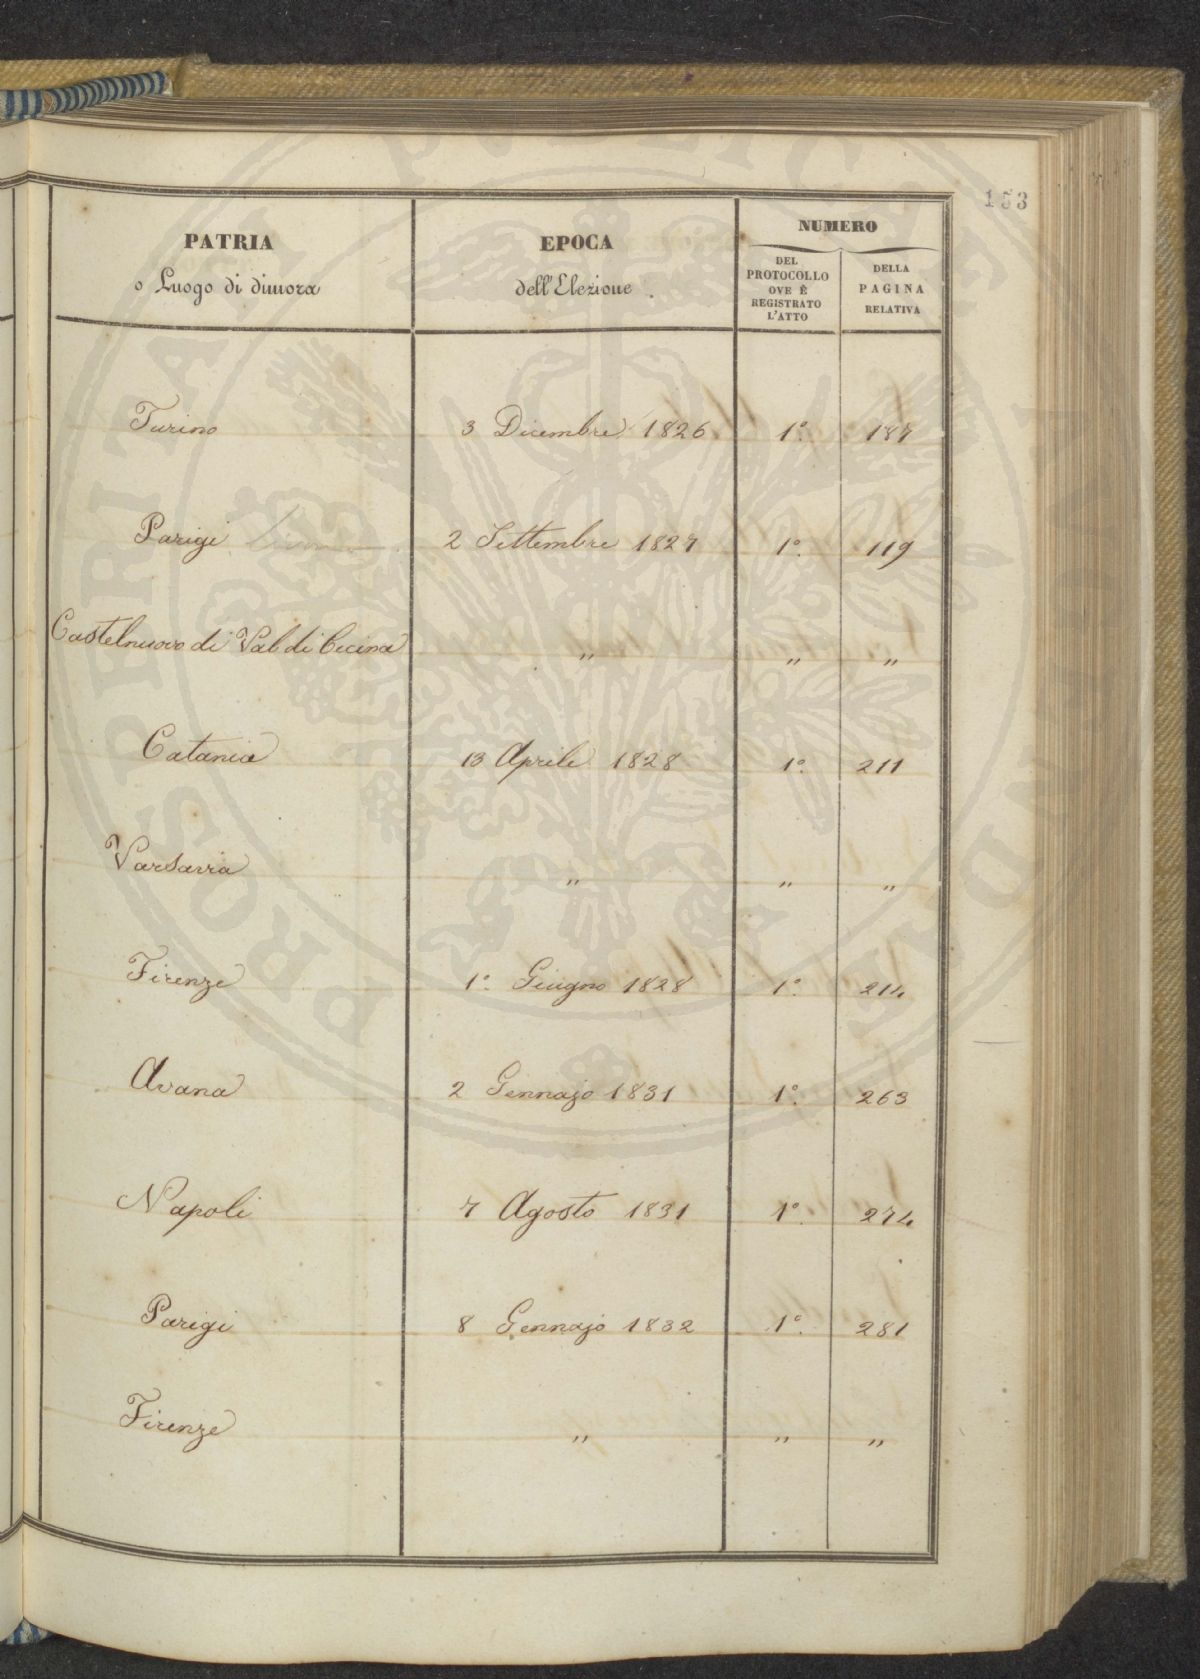 153
PATRIA
o Luogo di dimora
EPOCA
dell'Elezione
NUMERO
DEL
PROTOCOLLO
OVE È
REGISTRATO
L'ATTO
DELLA
PAGINA
RELATIVA
Turino 3 Dicembre 1826 1º. 187
Parigi 2 Settembre 1827 1º. 119
Castelnuovo di Val di Cecina " " "
Catania 13 Aprile 1828 1º. 211
Varsavia " " "
Firenze 1º. Giugno 1828 1º. 214
Avana 2 Gennajo 1831 1º. 263
Napoli 7 Agosto 1831 1º. 274
Parigi 8 Gennajo 1832 1º. 281
Firenze " " "